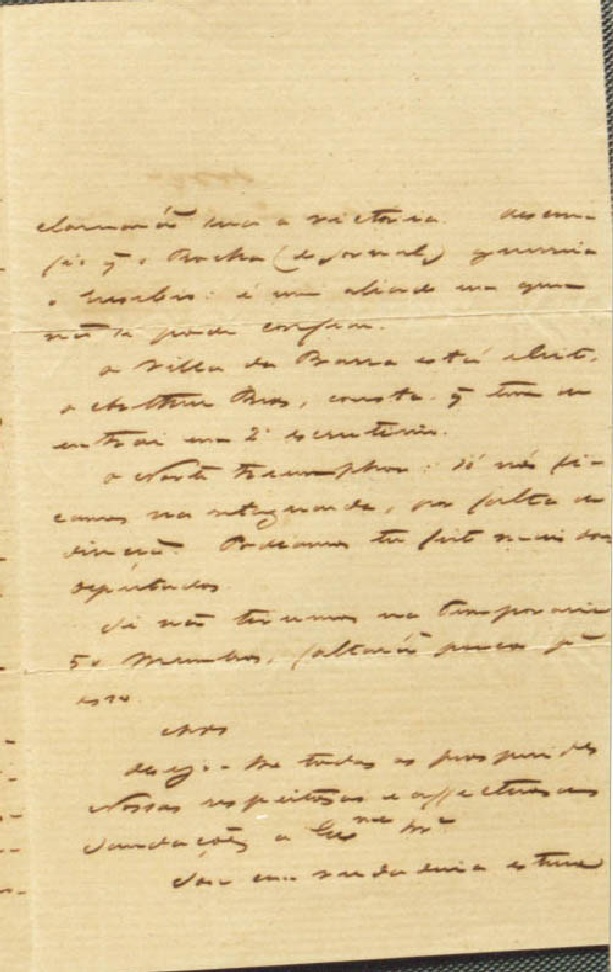 a victoria.
Rocha (do Jornal) guerreia
o Eusebio: é um aliado em quem
não se pode confiar.
a Villa da Barra está eleito,
o Arthur Rios, consta q tem de
entrar em 2º escrutinio.
o Norte triumphou: só nós fi-
camos na retaguarda, por falta de
direcção. Podiamos ter feito mais dous
deputados.
Se não tivermos na temporaria
50 membros, faltarão poucos pª
isso.
Adeus
desejo-lhe todas as prosperides
Nossas respeitosas e affectuosas
saudações a Exma
Sou com verdadeira estima